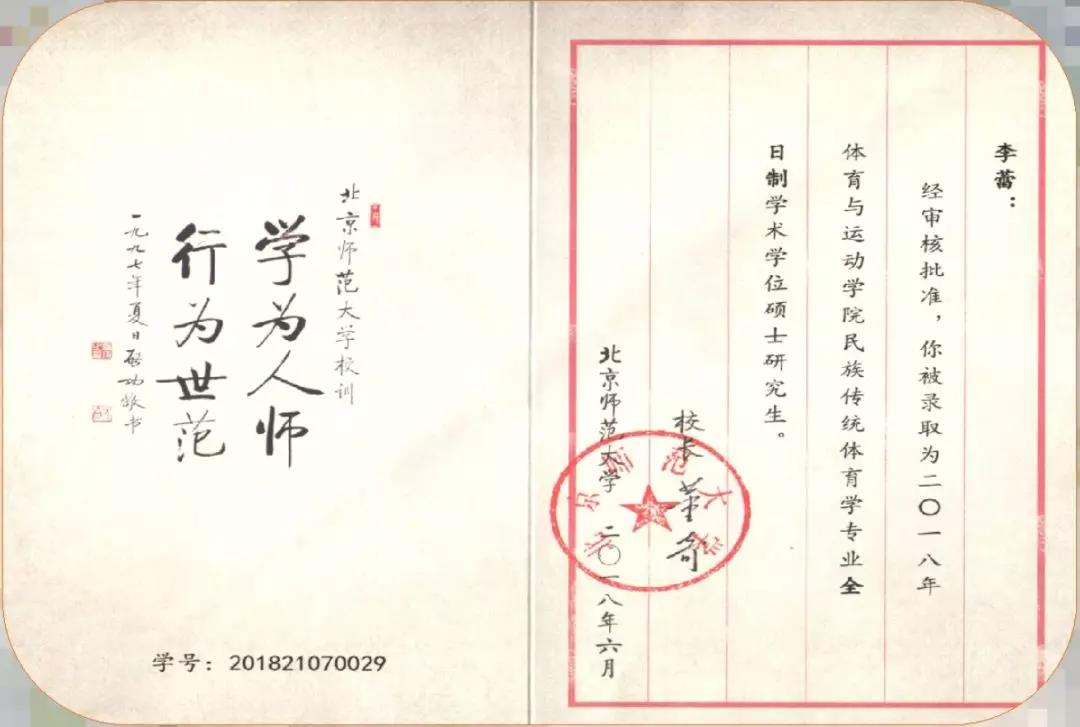 北京师范大学校训
学为人师
行为世范
一九九七年夏日启功敬书
学号：201821070029
李蕾：
经审核批准，你被录取为二〇一八年
体育与运动学院民族传统体育学专业全
日制学术学位硕士研究生。
校长 董奇
北京师范大学
二〇一八年六月
北京师范大学